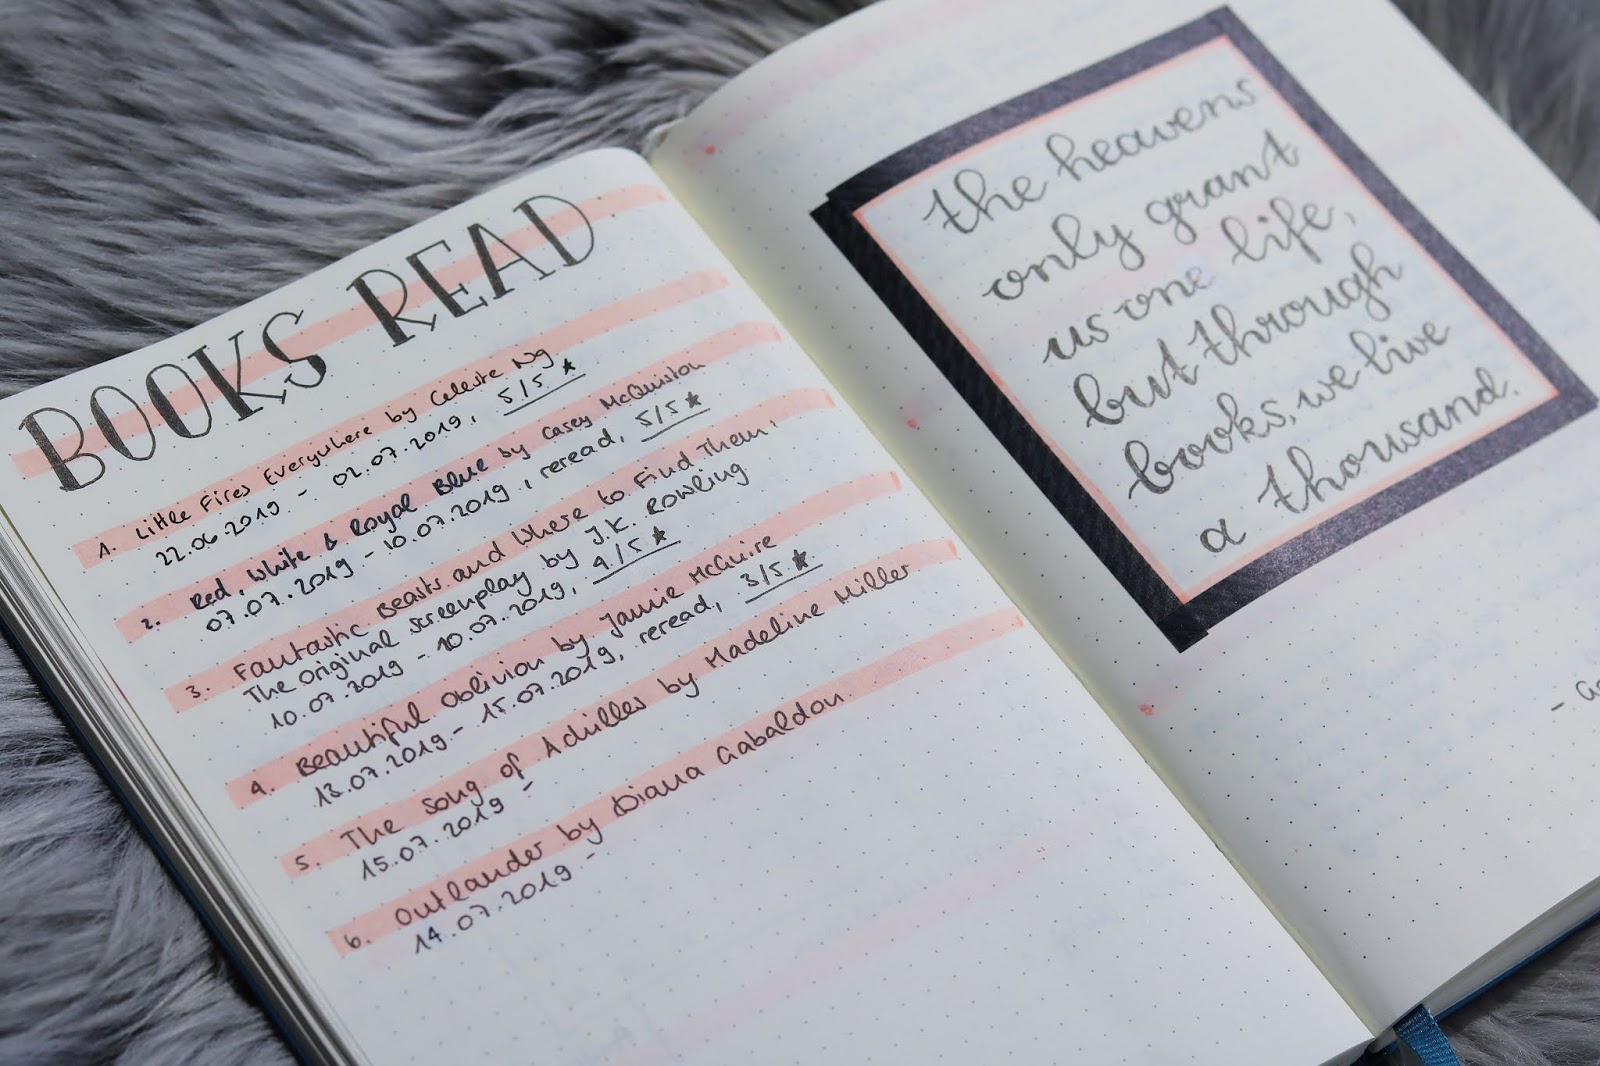 BOOKS READ
1. Little Fires Everywhere by Celeste Ng
22.06.2019 - 02.07.2019, 5/5 ★
2. Red, White & Royal Blue by Casey McQuiston
07.07.2019 - 10.07.2019, reread, 5/5 ★
3. Fantastic Beasts and Where to Find Them:
The Original Screenplay by J.K. Rowling
10.07.2019 - 10.07.2019, 4/5 ★
4. Beautiful Oblivion by Jamie McGuire
13.07.2019 - 15.07.2019, reread, 3/5 ★
5. The Song of Achilles by Madeline Miller
15.07.2019 -
6. Outlander by Diana Gabaldon
14.07.2019 -
the heavens
only grant
us one life,
but through
books, we live
a thousand.